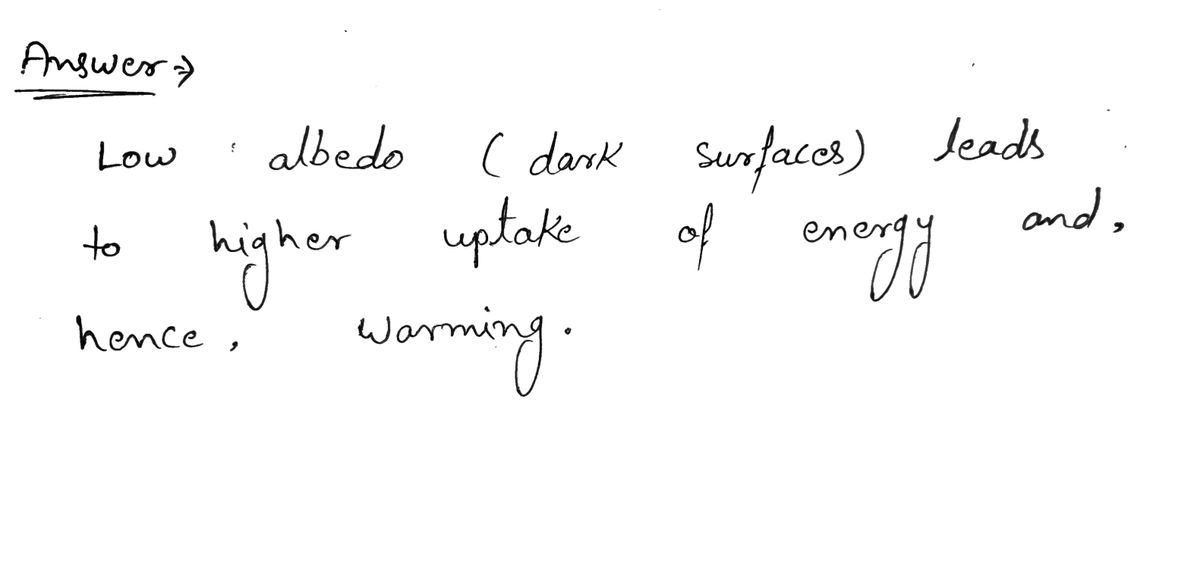 Answer →
Low albedo (dark surfaces) leads
to higher uptake of energy and,
hence, warming.